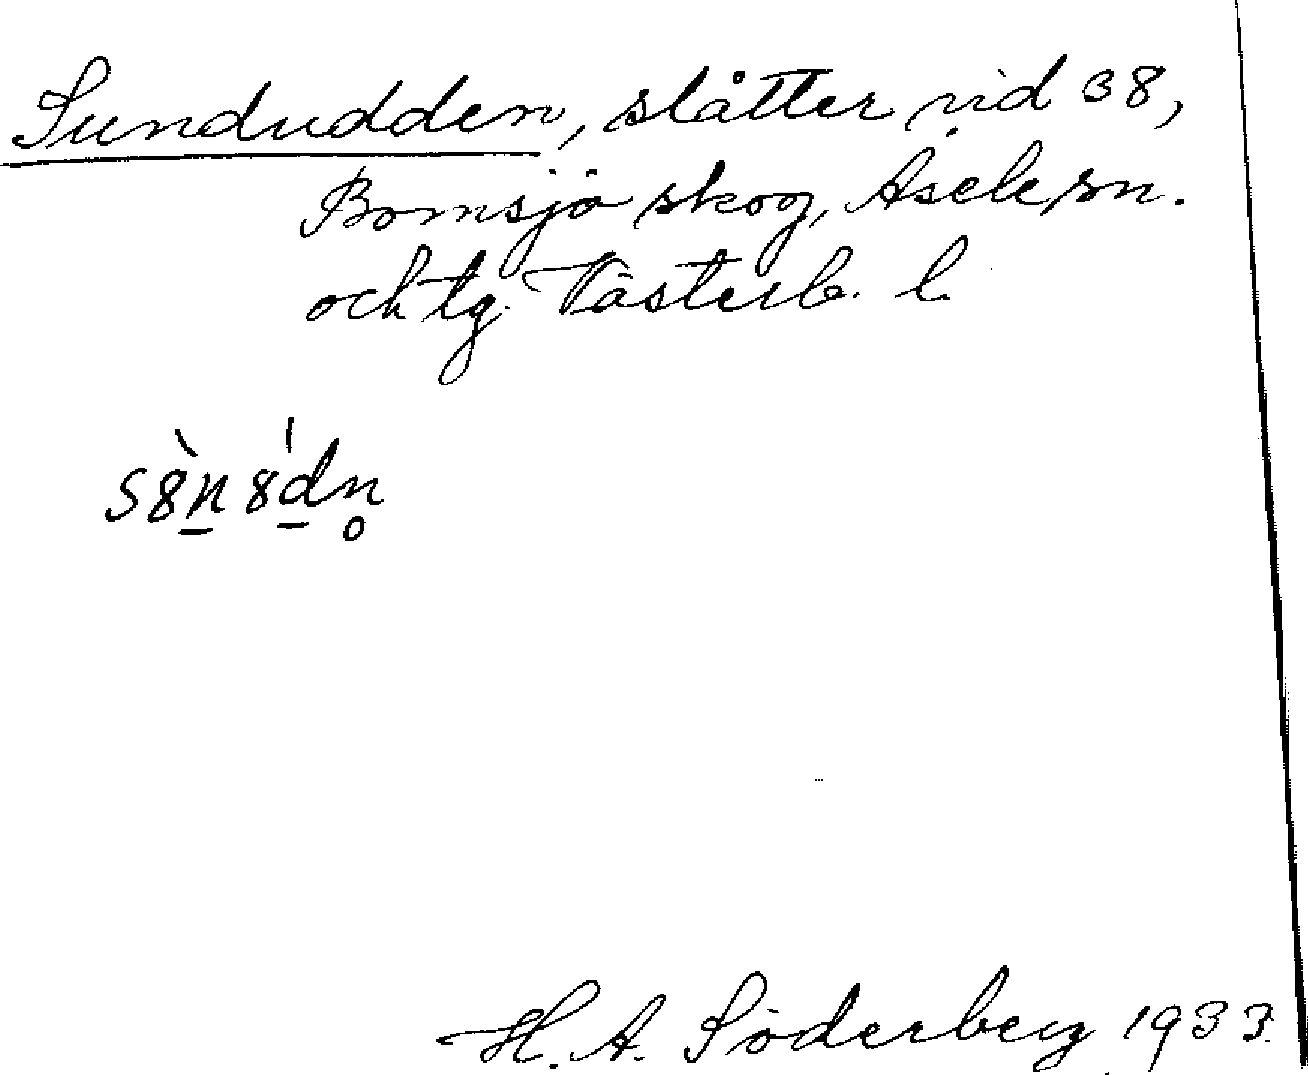 Sundudden, slåtter vid 38,
Bomsjö skog, Åsele sn.
och tg. Västerb. l.
s8̀n̲ 8d̲̍n̥
H. A. Söderberg 1933.